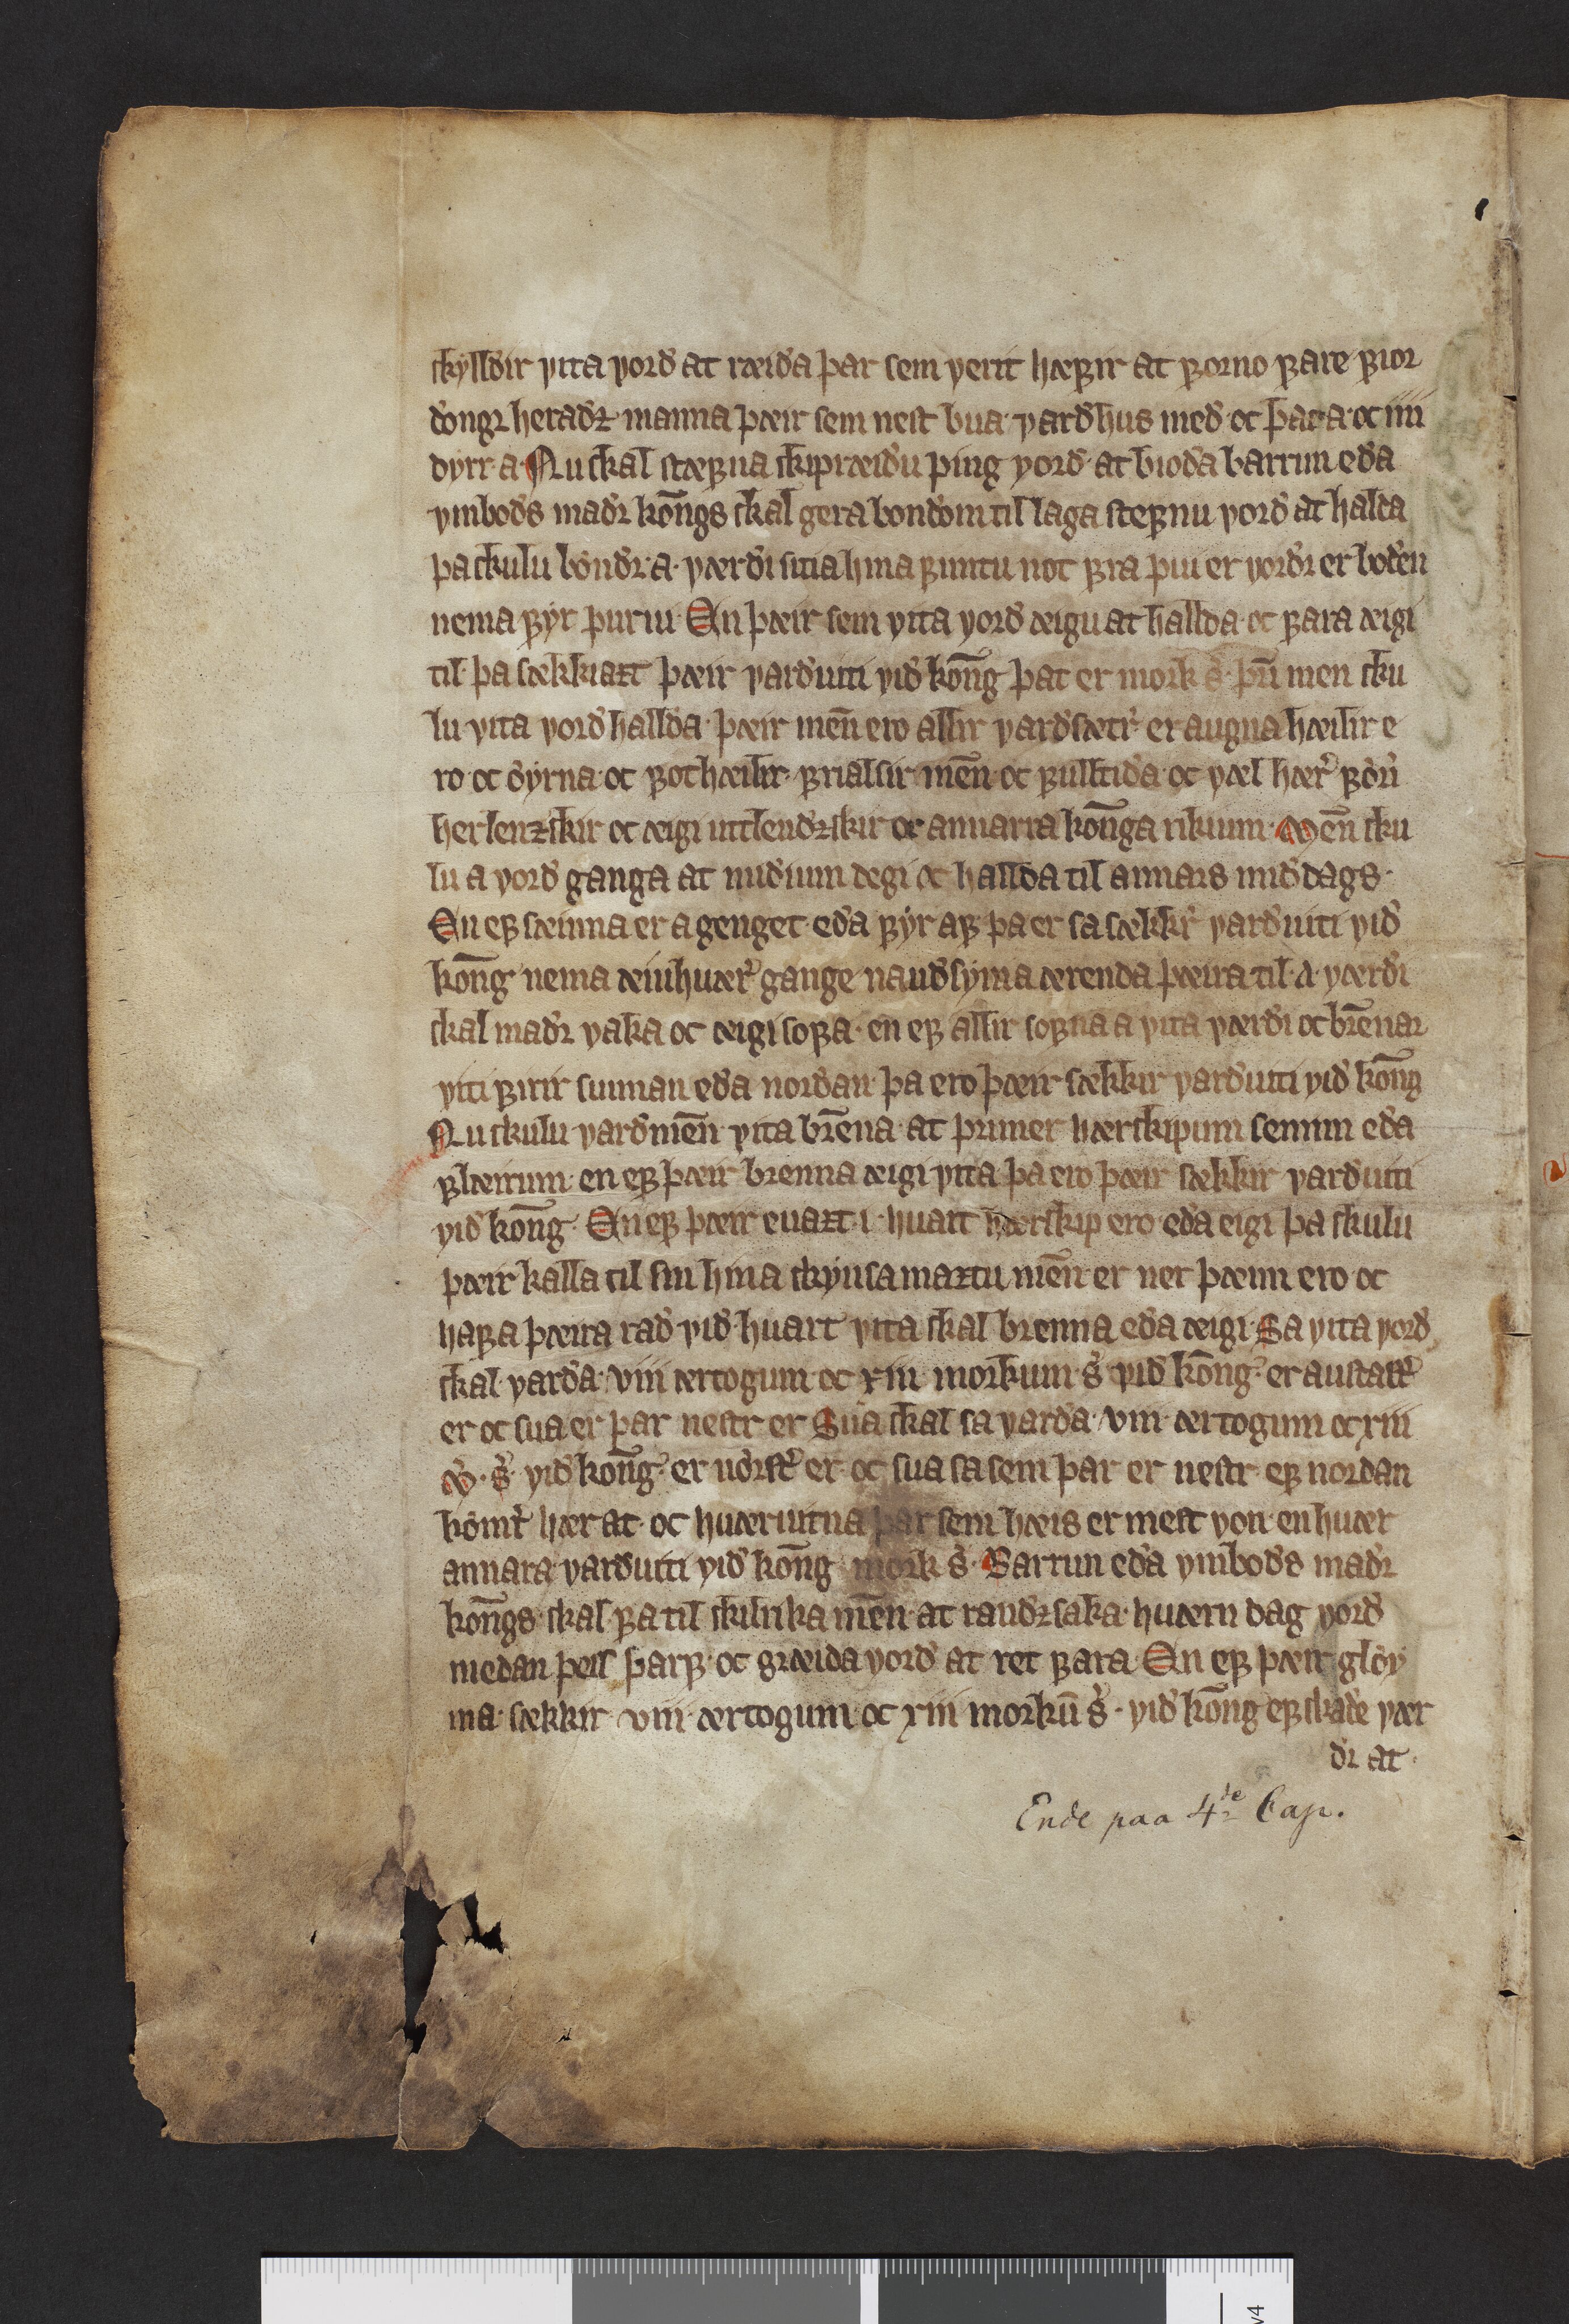 skylldir vita vord at ræida þar sem verit hæfir at forno fare fior
dongꝛ heradz manna þæir sem nest bua vardhus med oc þac a oc iiii
dyrr a Nu skal stæfna skipræidu þing vord at bioda barrun eda
vmbods madꝛ kōngs skal gera bondom til laga stefnu vord at halda
þa skulu bondꝛ a værdi sitia hina fimtu not fra þui er vordꝛ er boden
nema fyr þurui En þæir sem vita vord æigu at hallda oc fara æigi
til þa sækkuazt þæir varduiti vid kōng þat er mork s þri men sku
lu vita vord hallda þæir men̄ ero allir vardsætr er augna hæilir e
ro oc öyrna oc fothæilir frialsir men̄ oc fulltida oc væl hær för
herlenzskir oc æigi uttlendzskir or annarra kōnga rikium Men̄ sku
lu a vord ganga at midium degi oc hallda til annars middags
En ef sæinna er a genget eda fyr af þa er sa sækkr varduiti vid
kōng nema æinhuær gange naudsynia ærenda þæira til A værdi
skal madꝛ vaka oc æigi sofa en ef allir sofna a vita værdi oc bren̄ar
viti firir sunnan eda nordan þa ero þæir sækkir varduiti vid kōng
Nu skulu vardmen̄ vita bren̄a at þrimer hærskipum senum eda
flæirum en ef þæir brenna æigi vita þa ero þæir sækkir varduiti
vid kōng En ef þæir euazt i huart hærskip ero eda eigi þa skulu
þæir kalla til sin hina skynsamaztu men̄ er ner þæim ero oc
hafa þæira rad vid huart vita skal brenna eda æigi Sa vita vord
skal varda viii ærtogum oc xiii morkum s vid kōng er austaſtr
er oc sua er þar nestr er Sua skal sa varda viii ærtogum oc xiii
M s vid kōng er nörstr er oc sua sa sem þar er nestr ef nordan
kömr hær at oc huæruitna þar sem hæis er mest von en huær
annara varduiti vid kōng mork s Barrun eda vmbods madꝛ
kōngs skal fa til skilrika men̄ at raudzsaka huærn dag vord
medan þess þarf oc græida vord at ret fara En ef þæir glöy
ma sækkir viii ærtogum oc xiii morkū s vid kōng ef skade vær
dꝛ at
Ende paa 4de Cap.